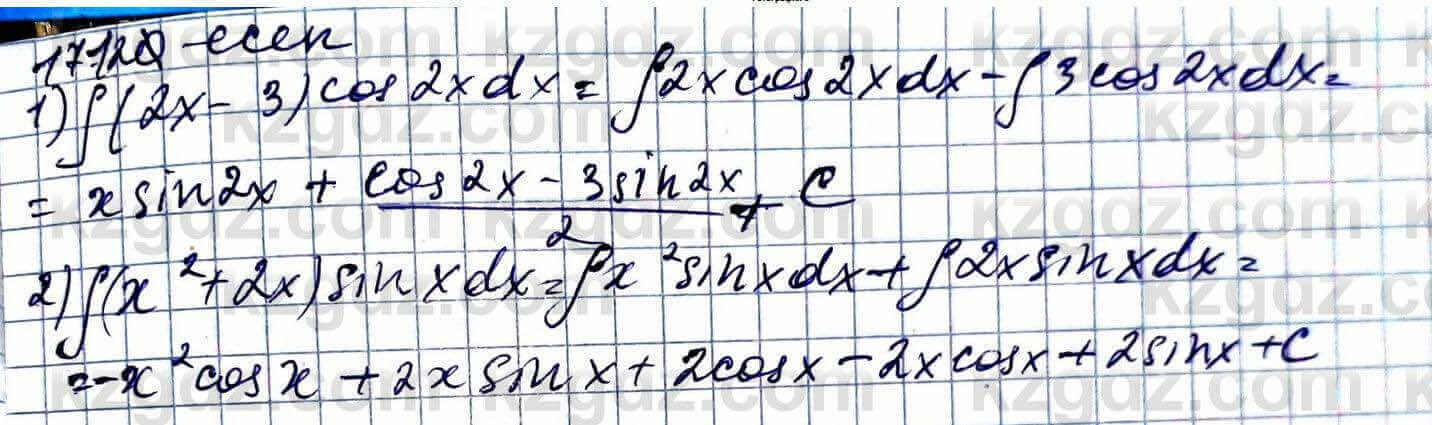 17.120 -есеп
1) ∫(2x - 3) cos 2x dx = ∫2x cos 2x dx - ∫3 cos 2x dx =
= x sin 2x + (cos 2x - 3 sin 2x)/2 + C
2) ∫(x² + 2x) sin x dx = ∫x² sin x dx + ∫2x sin x dx =
= -x² cos x + 2x sin x + 2cos x - 2x cos x + 2 sin x + C
kzgdz.com